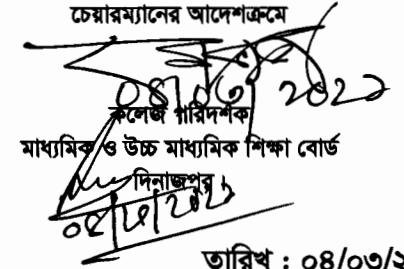 চেয়ারম্যানের আদেশক্রমে
কলেজ পরিদর্শক
মাধ্যমিক ও উচ্চ মাধ্যমিক শিক্ষা বোর্ড
দিনাজপুর।
তারিখ : ০৪/০৩/২